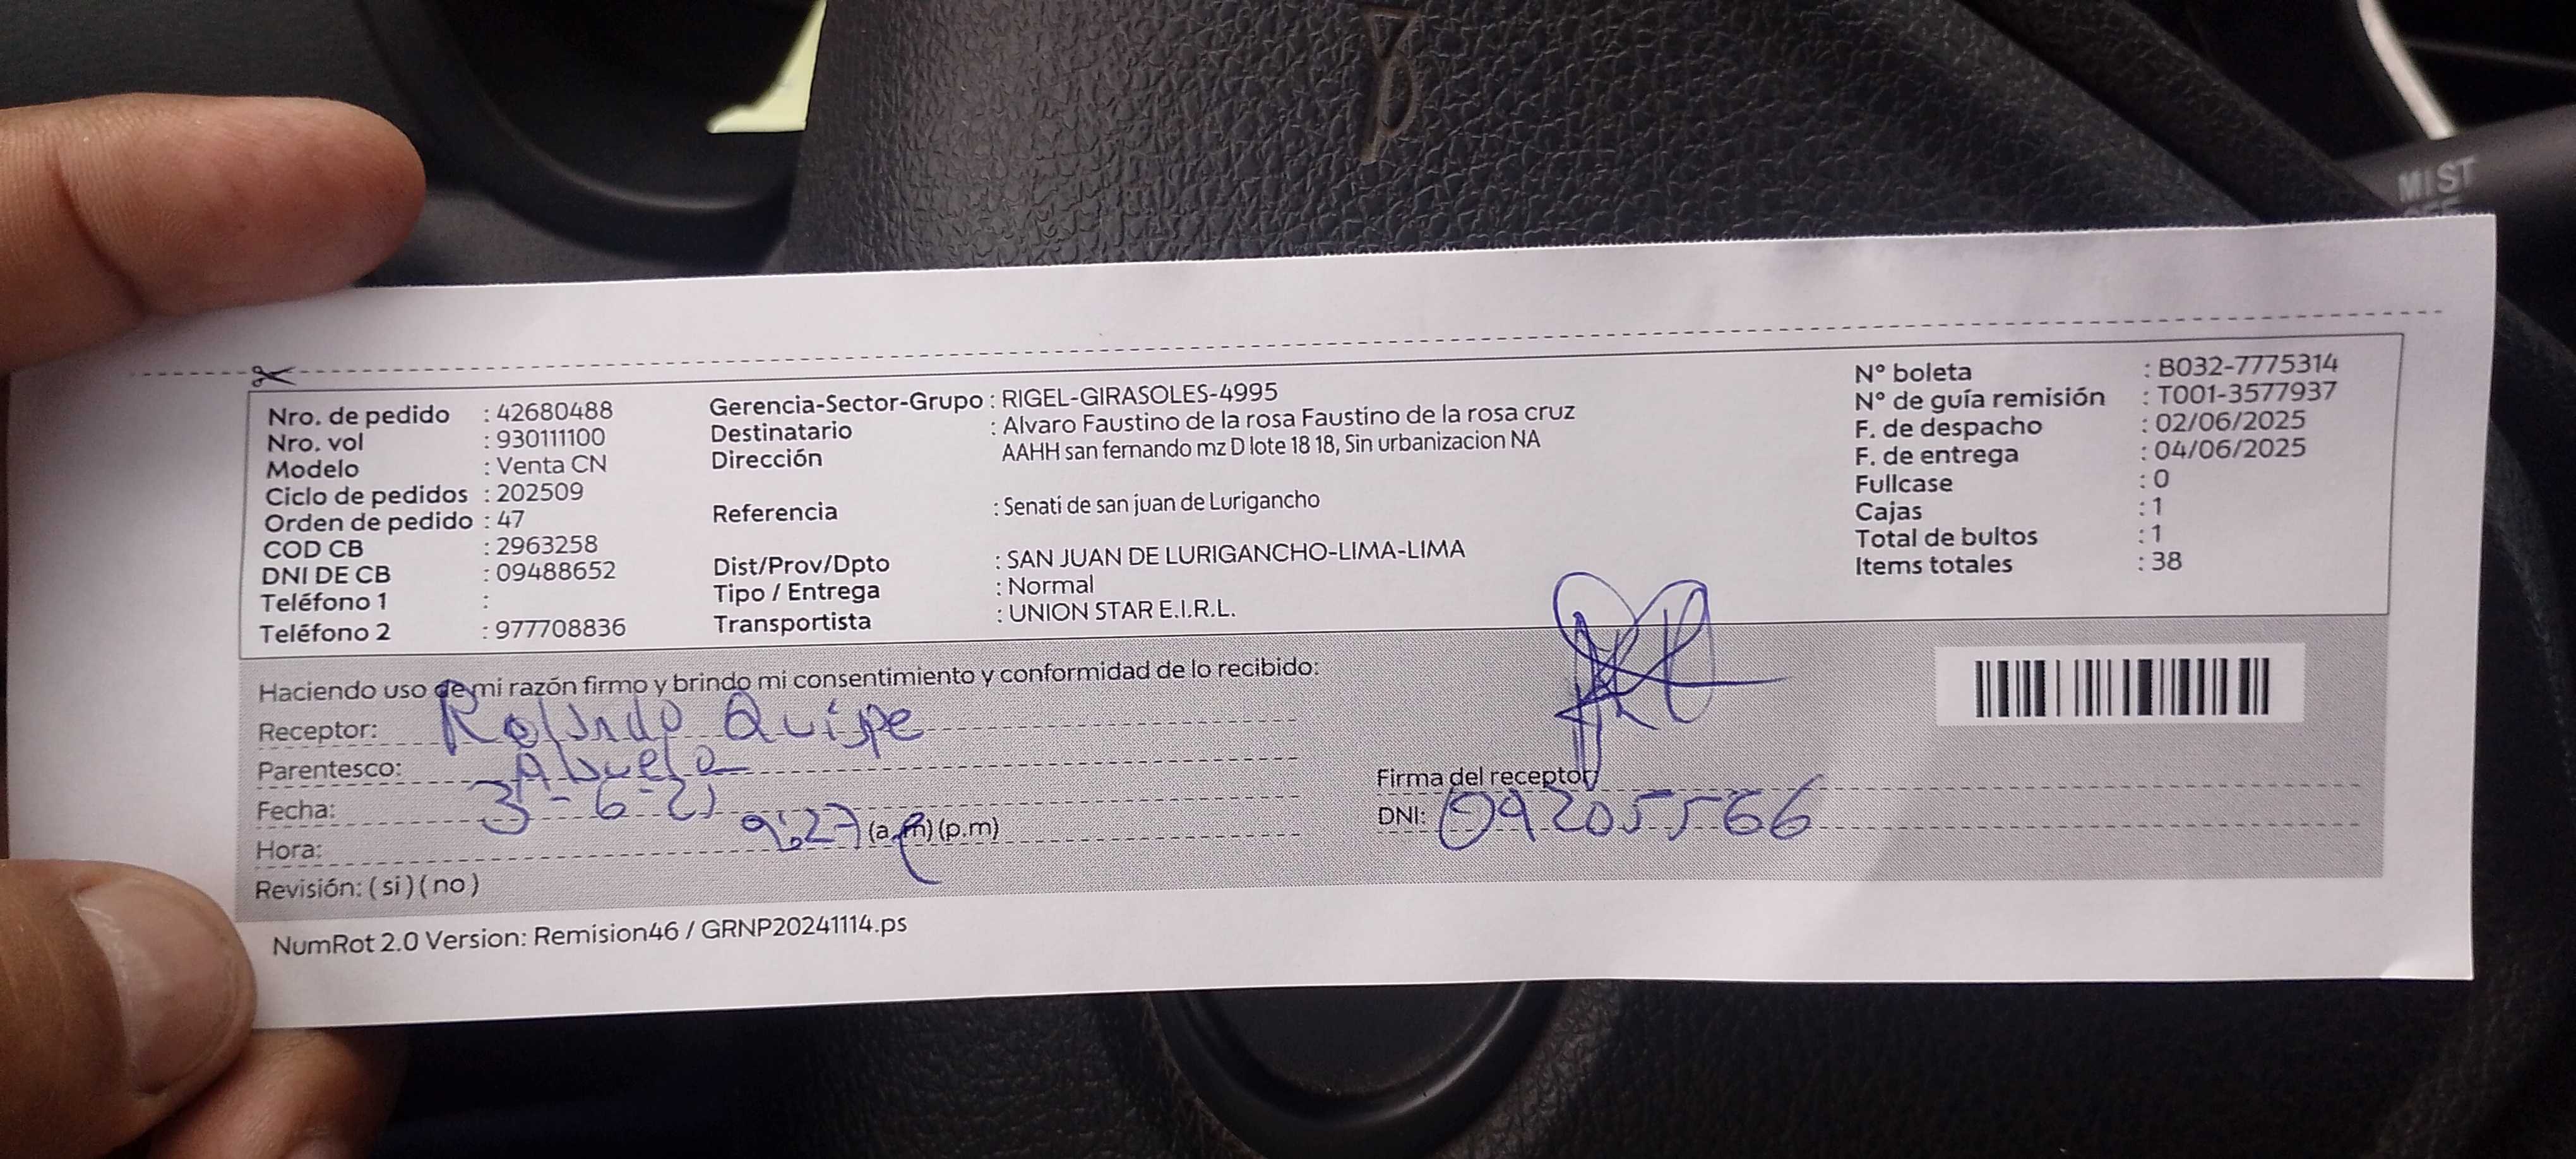 MIST
Nro. de pedido : 42680488
Nro. vol : 930111100
Modelo : Venta CN
Ciclo de pedidos : 202509
Orden de pedido : 47
COD CB : 2963258
DNI DE CB : 09488652
Teléfono 1 :
Teléfono 2 : 977708836
Gerencia-Sector-Grupo : RIGEL-GIRASOLES-4995
Destinatario : Alvaro Faustino de la rosa Faustino de la rosa cruz
Dirección AAHH san fernando mz D lote 18 18, Sin urbanizacion NA
Referencia : Senati de san juan de Lurigancho
Dist/Prov/Dpto : SAN JUAN DE LURIGANCHO-LIMA-LIMA
Tipo / Entrega : Normal
Transportista : UNION STAR E.I.R.L.
N° boleta : B032-7775314
N° de guía remisión : T001-3577937
F. de despacho : 02/06/2025
F. de entrega : 04/06/2025
Fullcase : 0
Cajas : 1
Total de bultos : 1
Items totales : 38
Haciendo uso de mi razón firmo y brindo mi consentimiento y conformidad de lo recibido:
Receptor: Quispe
Parentesco: Abuelo
Fecha:
Hora: 9:27 (a.m) (p.m)
Revisión: (si) (no)
Firma del receptor
DNI: 09205566
NumRot 2.0 Version: Remision46 / GRNP20241114.ps